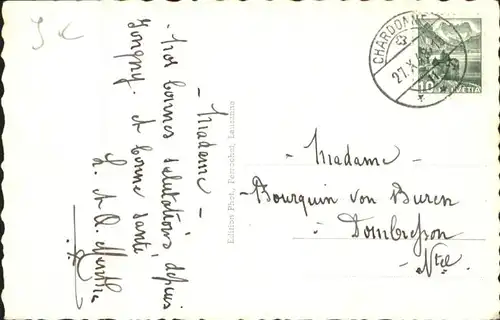 - Madame -
Nos bonnes salutations, depuis
Jongny. et bonne santé
Edition Phot. Perrochet, Lausanne
CHARDONNE
27.X
HELVETIA
- Madame -
- Bourquin von Buren
Dombresson
- Ntel.